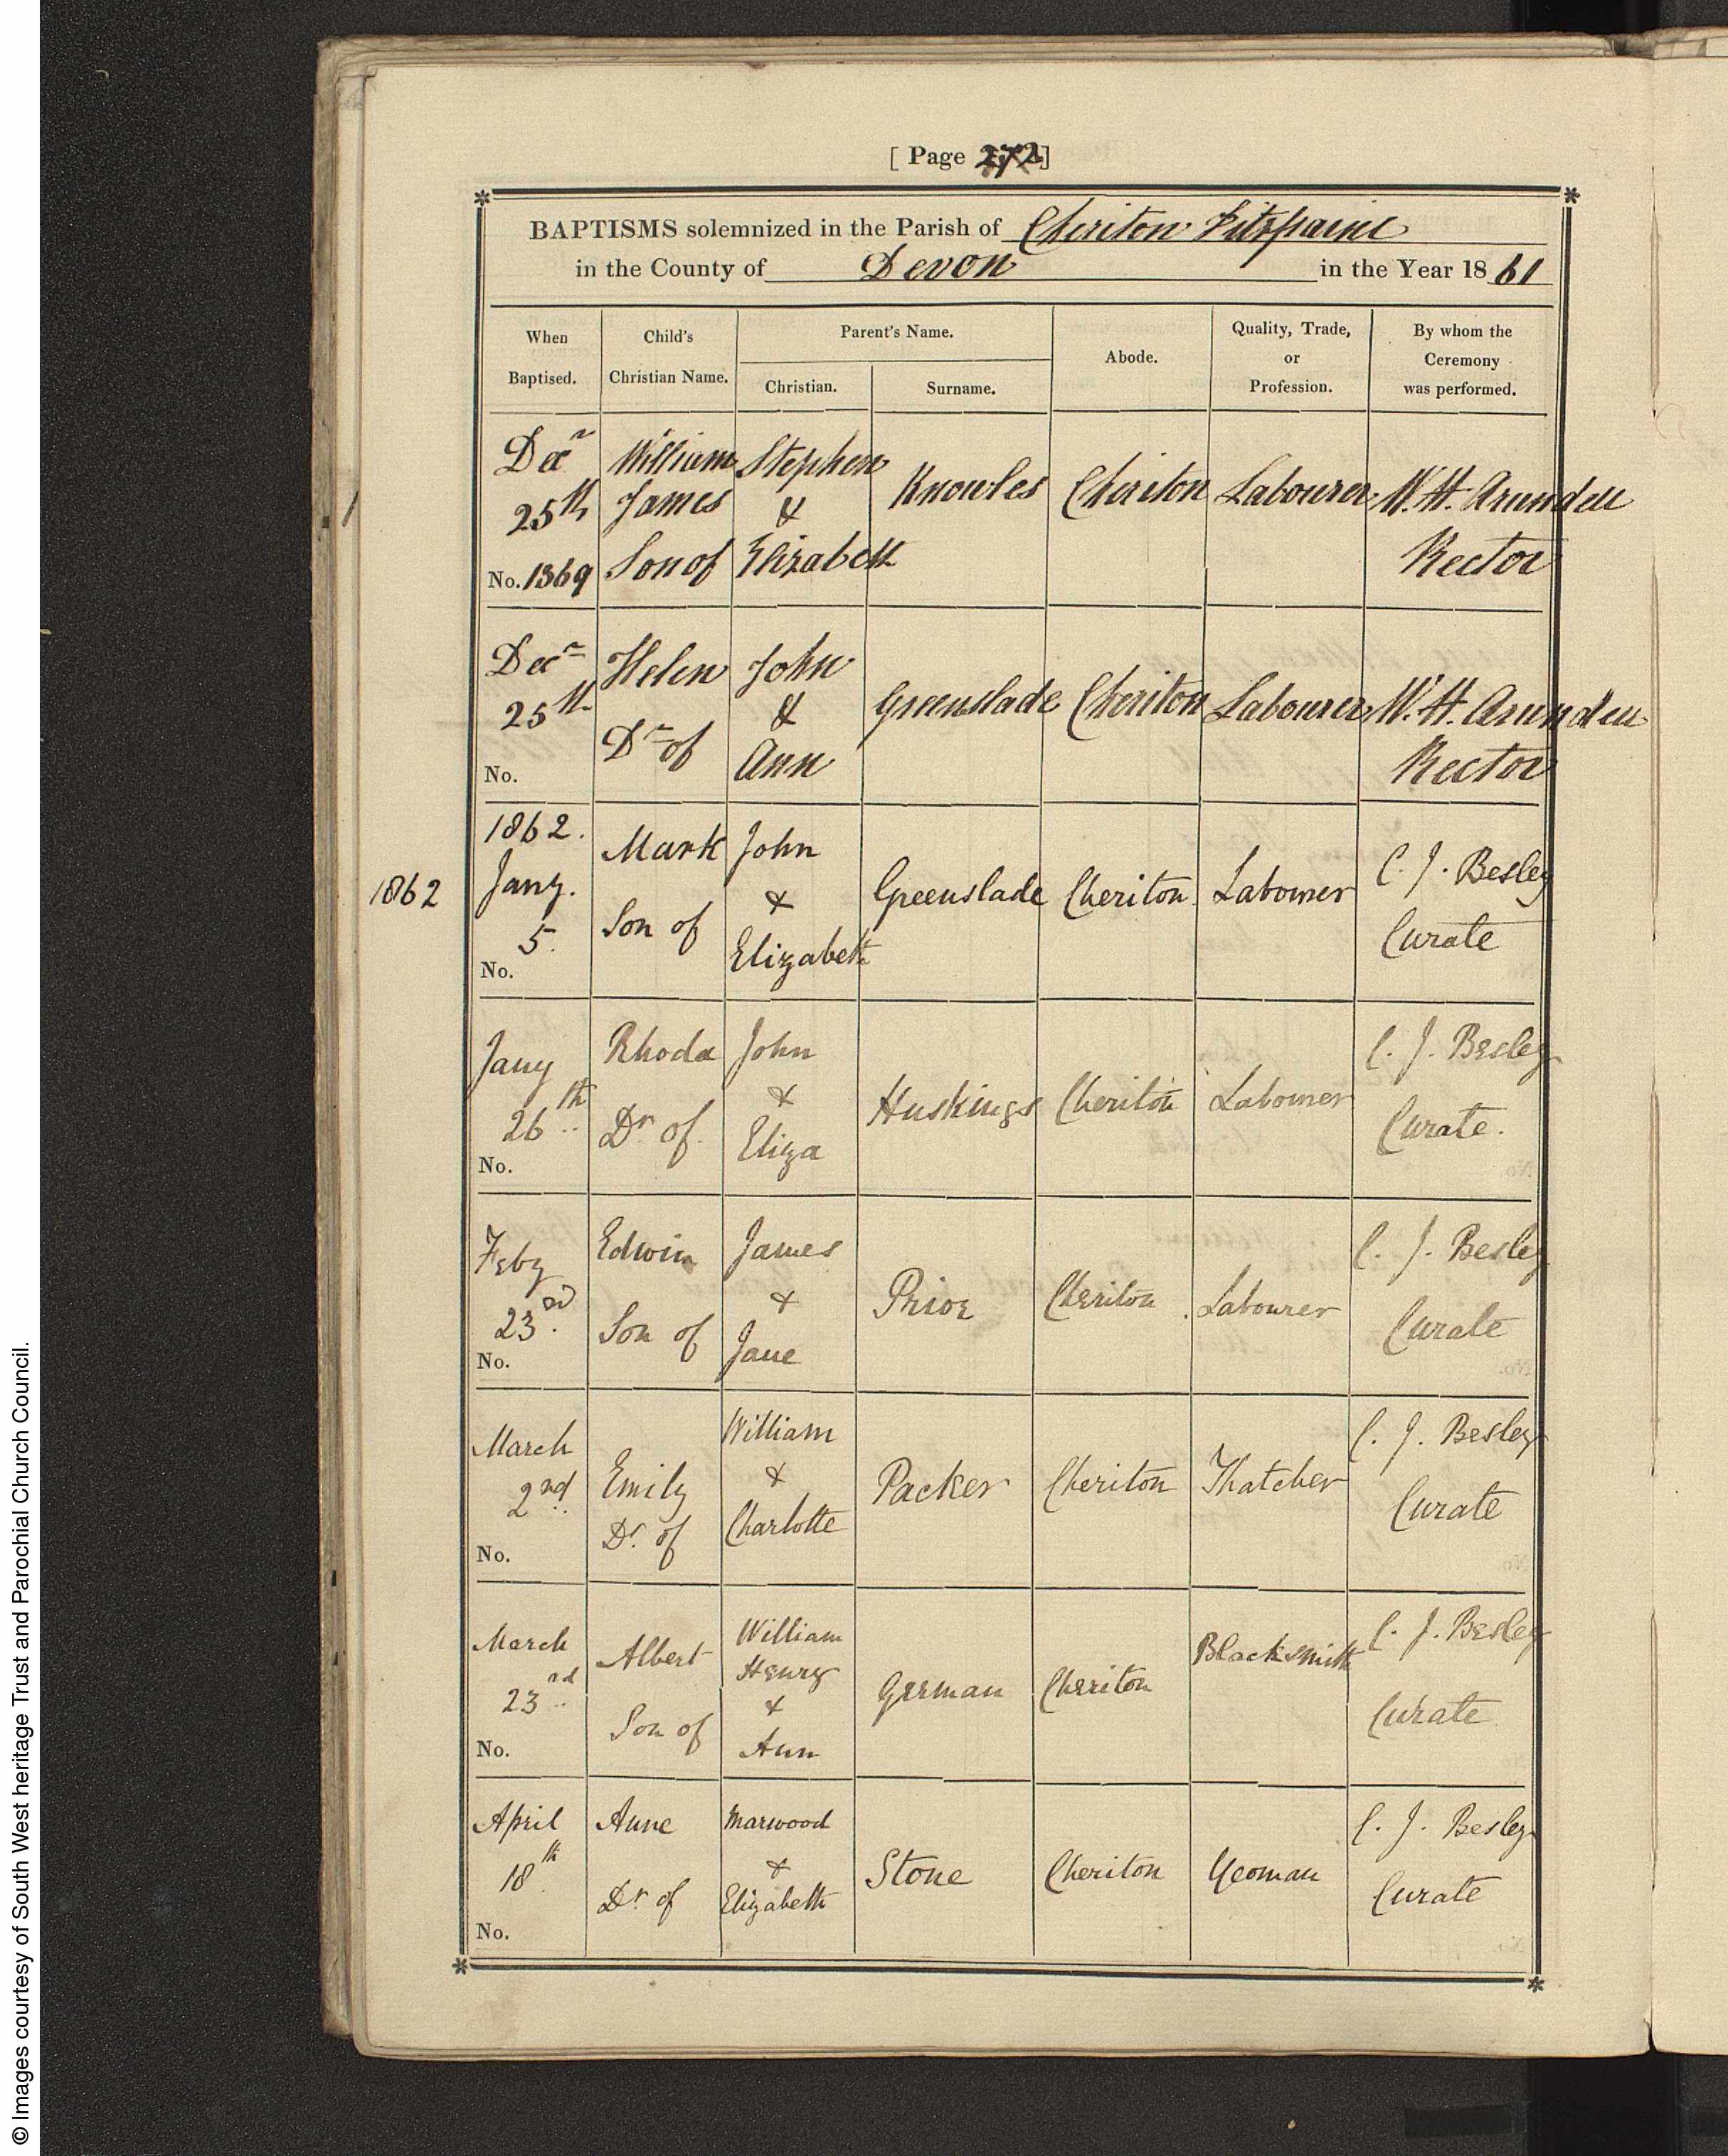 [ Page 272]
BAPTISMS solemnized in the Parish of Cheriton Fitzpaine
in the County of Devon in the Year 1861
When Baptised. Child's Christian Name. Parent's Name. Christian. Surname. Abode. Quality, Trade, or Profession. By whom the Ceremony was performed.
Decr 25th No. 1369 William James Son of Stephen & Elizabeth Knowles Cheriton Labourer W. H. Arundell Rector
Decr 25th No. Helen Dr of John & Ann Greenslade Cheriton Labourer W. H. Arundell Rector
1862
1862. Jany. 5. No. Mark Son of John & Elizabeth Greenslade Cheriton Labourer C. J. Besley Curate
Jany 26th No. Rhoda Dr of John & Eliza Huskings Cheriton Labourer C. J. Besley Curate.
Feby 23rd No. Edwin Son of James & Jane Prior Cheriton Labourer C. J. Besley Curate
March 2nd No. Emily Dr. of William & Charlotte Packer Cheriton Thatcher C. J. Besley Curate
March 23rd No. Albert Son of William Henry & Ann German Cheriton Blacksmith C. J. Besley Curate
April 18th No. Anne Dr of Marwood & Elizabeth Stone Cheriton Yeoman C. J. Besley Curate
© Images courtesy of South West heritage Trust and Parochial Church Council.